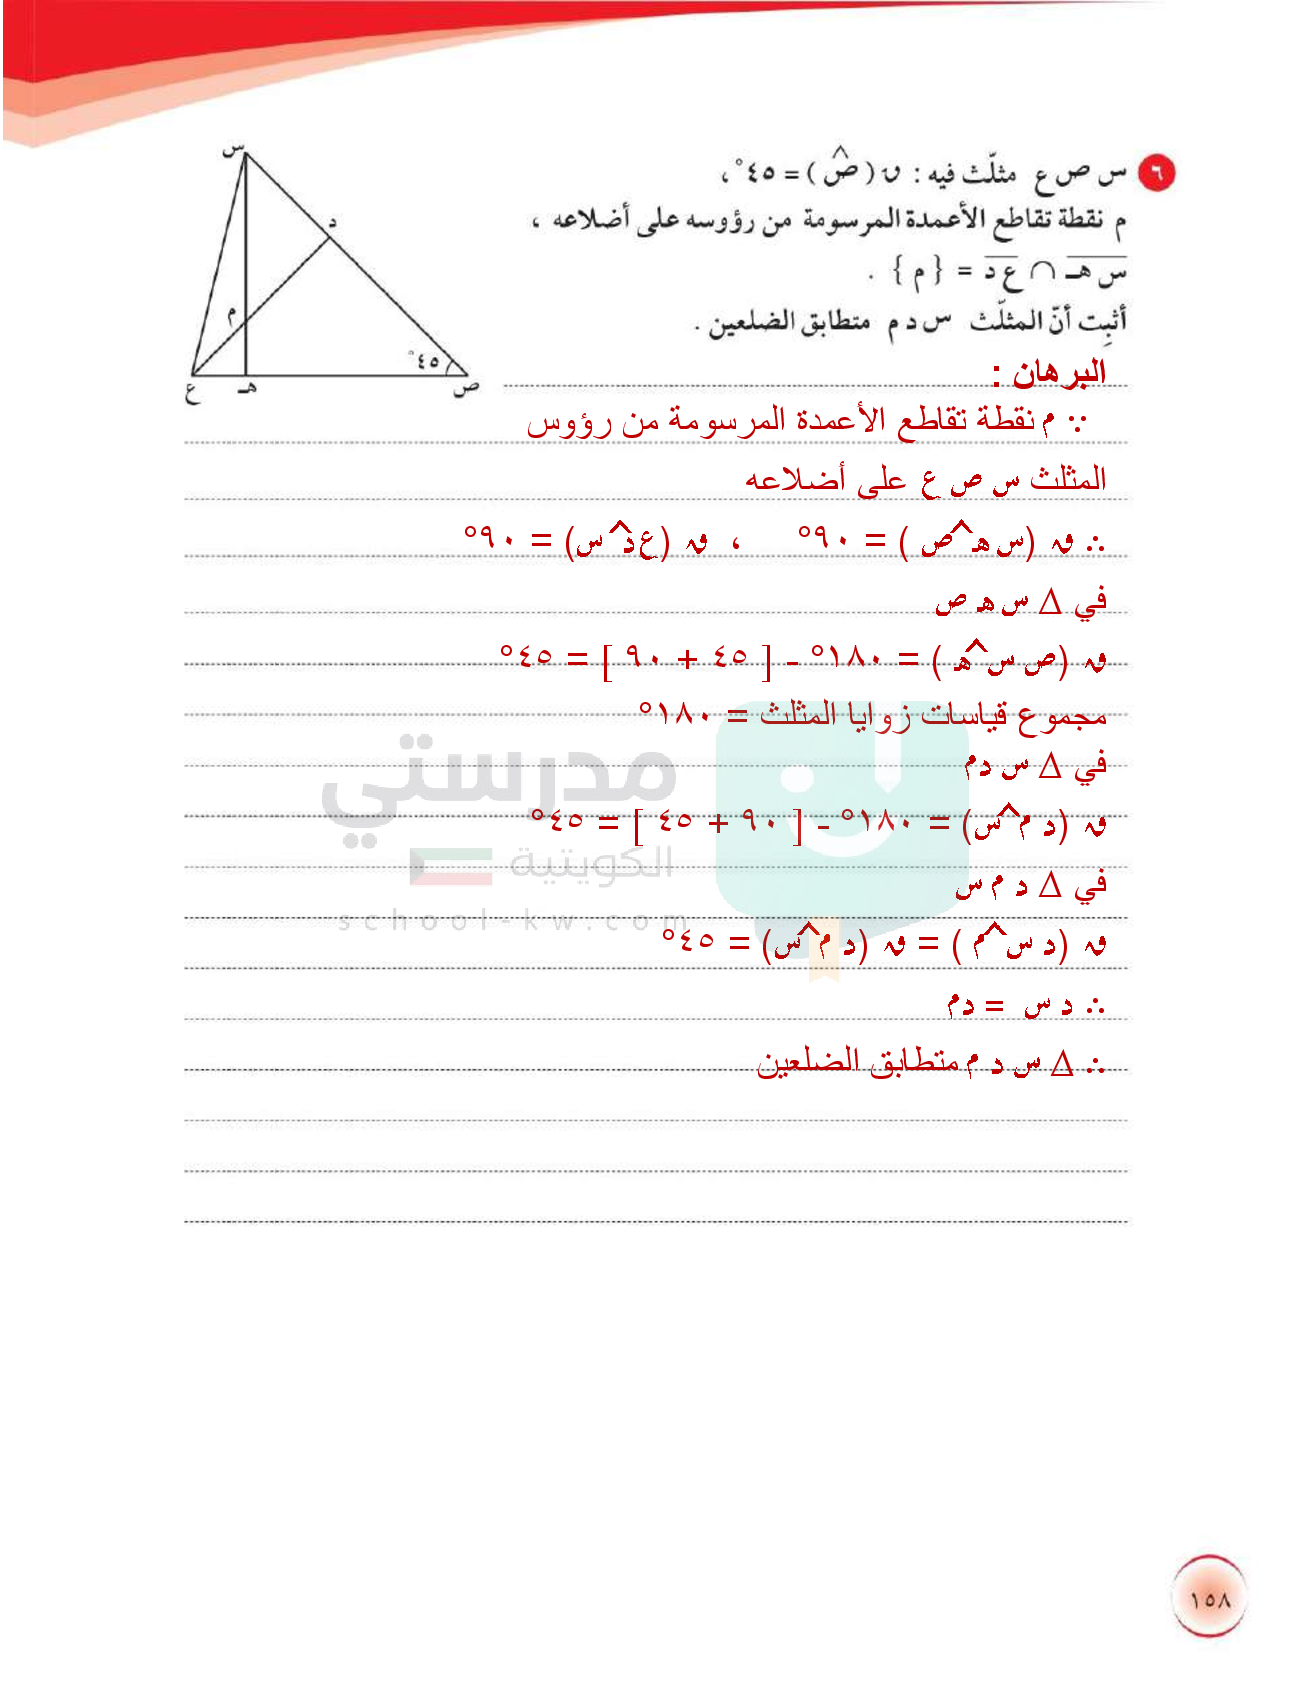 ٦ س ص ع مثلّث فيه : ق (ص^) = ٤٥° ،
م نقطة تقاطع الأعمدة المرسومة من رؤوسه على أضلاعه ،
س هـ ∩ ع د = { م } .
أثبِت أنّ المثلّث س د م متطابق الضلعين .
س
د
م
٤٥°
ع
هـ
ص
البرهان :
∵ م نقطة تقاطع الأعمدة المرسومة من رؤوس
المثلث س ص ع على أضلاعه
∴ ق (س هـ^ ص ) = ٩٠° ، ق (ع د^ س) = ٩٠°
في Δ س هـ ص
ق (ص س^ هـ ) = ١٨٠° - [ ٤٥ + ٩٠ ] = ٤٥°
مجموع قياسات زوايا المثلث = ١٨٠°
في Δ س د م
ق (د م^ س) = ١٨٠° - [ ٩٠ + ٤٥ ] = ٤٥°
في Δ د م س
ق (د س^ م ) = ق (د م^ س) = ٤٥°
∴ د س = د م
∴ Δ س د م متطابق الضلعين
مدرستي
الكويتية
school-kw.com
١٥٨